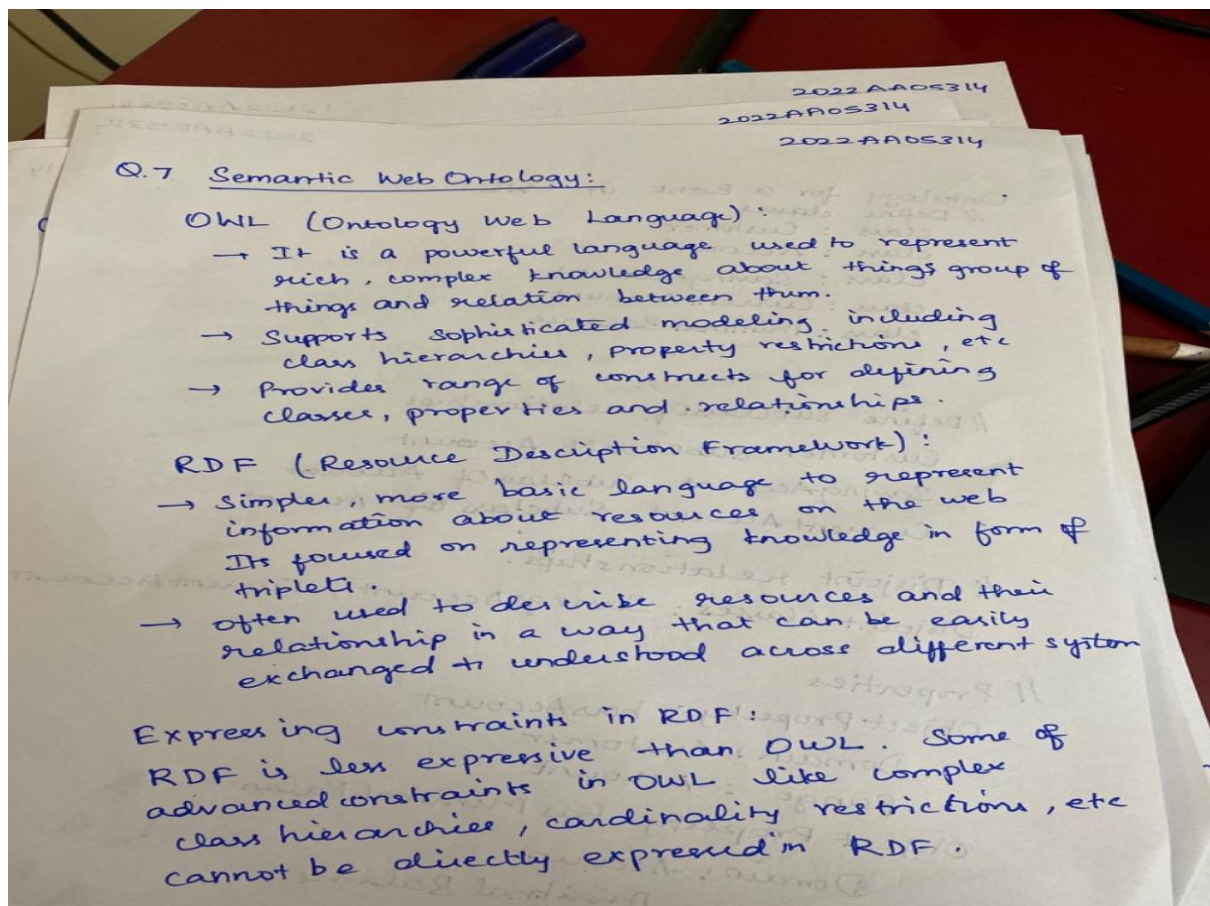 2022AA05314
2022AA05314
2022AA05314
Q.7 Semantic Web Ontology:
OWL (Ontology Web Language):
→ It is a powerful language used to represent
rich, complex knowledge about things group of
things and relation between them.
→ Supports sophisticated modeling including
class hierarchies, property restrictions, etc
→ Provides range of constructs for defining
classes, properties and relationships.
RDF (Resource Description Framework):
→ Simpler, more basic language to represent
information about resources on the web
Its focused on representing knowledge in form of
triplets.
→ often used to describe resources and their
relationship in a way that can be easily
exchanged & understood across different system
Expressing constraints in RDF:
RDF is less expressive than OWL. Some of
advanced constraints in OWL like complex
class hierarchies, cardinality restrictions, etc
cannot be directly expressed in RDF.